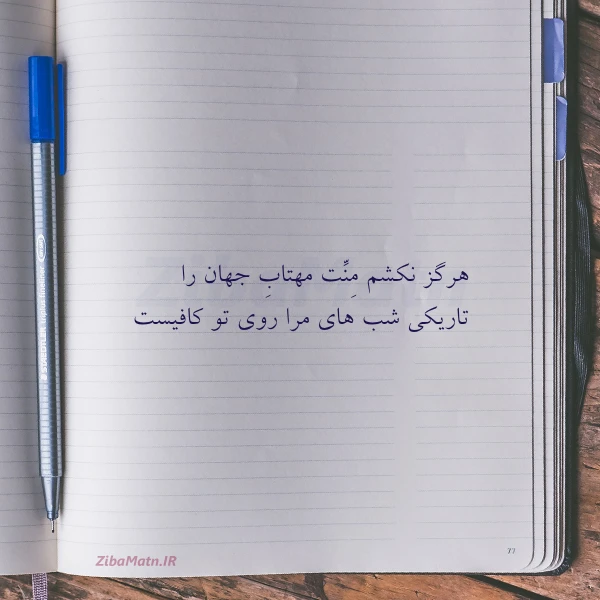 هرگز نکشم مِنِّت مهتابِ جهان را
تاریکی شب های مرا روی تو کافیست
ZibaMatn.IR